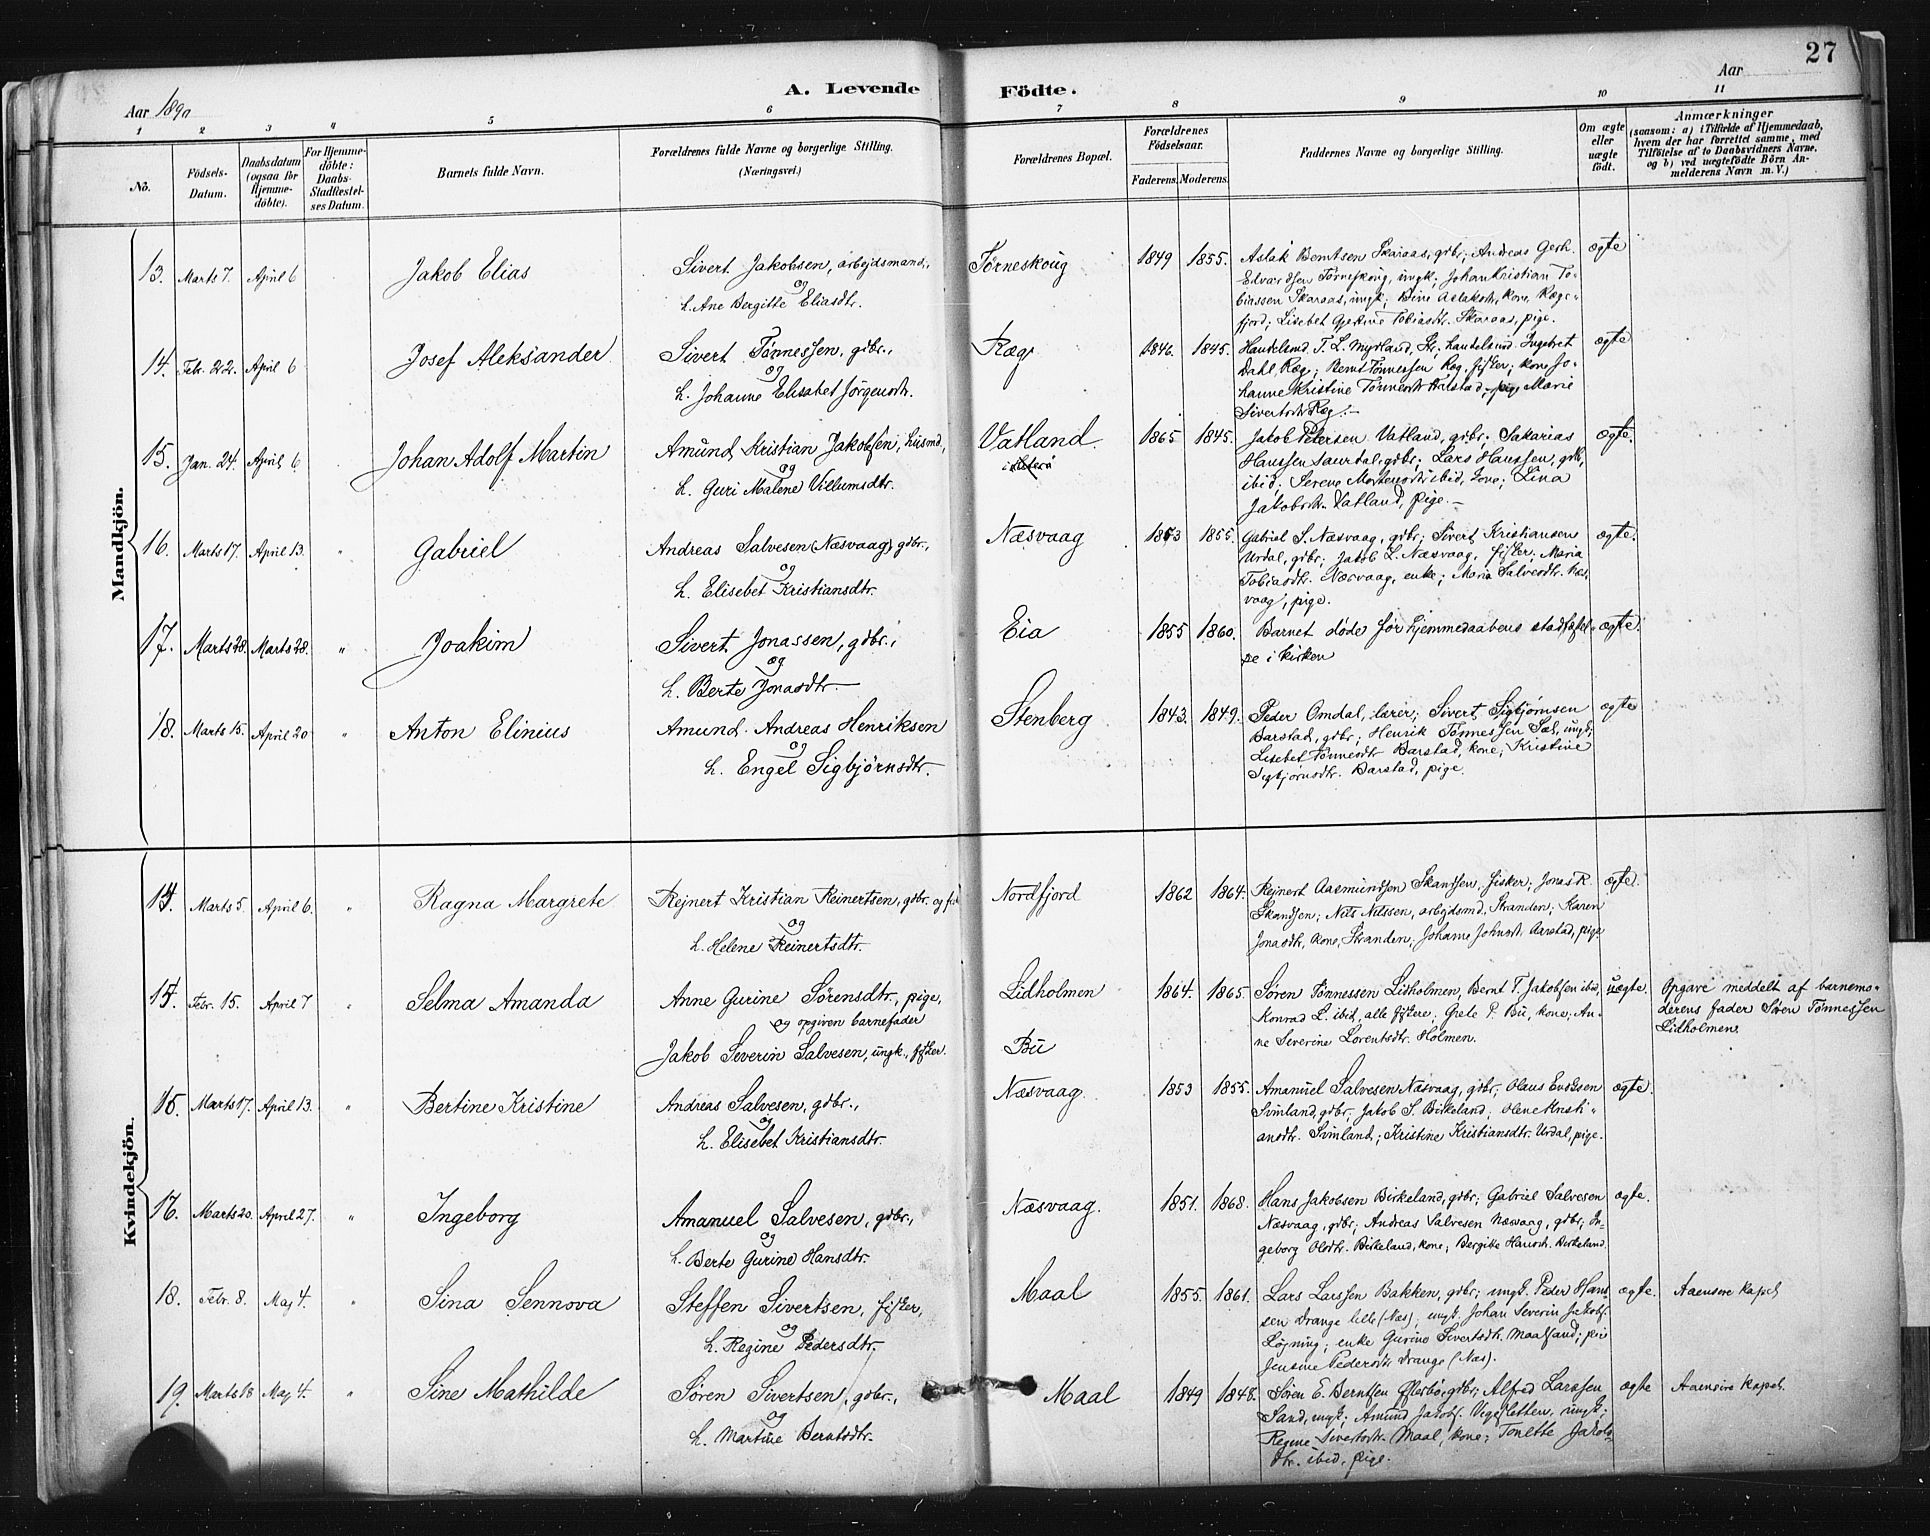 27
A. Levende Födte.
Aar 1890
Aar
1 2 3 4 5 6 7 8 9 10 11
No.
Födsels-Datum.
Daabsdatum (ogsaa for Hjemmedöbte).
For Hjemmedöbte: Daabs-Stadfæstelses Datum.
Barnets fulde Navn.
Forældrenes fulde Navne og borgerlige Stilling. (Næringsvei.)
Forældrenes Bopæl.
Forældrenes Födselsaar.
Faderens. Moderens.
Faddernes Navne og borgerlige Stilling.
Om ægte eller uægte födt.
Anmærkninger
(saasom: a) i Tilfælde af Hjemmedaab, hvem der har forrettet samme, med Tilföielse af to Daabsvidners Navne, og b) ved uegtefödte Börn Anmelderens Navn m. V.)
Mandkjön.
13. Marts 7 April 6 Jakob Elias
Sivert Jakobsen, arbejdsmand,
og
h. Ane Bergitte Eliasdtr.
Törneskoug 1849 1855.
Aslak Berntsen Skaraas, gdbr; Andreas Gerh.
Edvardsen Törneskoug, ungk; Johan Kristian To-
biassen Skaraas, ungk; Bine Aslaksdtr, kone, Ræge-
fjord; Lisebet Gjertine Tobiasdtr. Skaraas, pige.
ægte
14. Febr. 22. April 6 Josef Aleksander
Sivert Tönnessen, gdbr.,
og
h. Johanne Elisabet Jörgensdtr.
Ræg 1846. 1845.
Handelsmd. T. L. Myrland, Str; handelsmd. Ingebret
Dahl, Ræg; Bernt Tönnessen Ræg, fisker; kone Jo-
hanne Kristine Tönnesdtr Aarstad, pige Marie
Sivertsdtr Ræg.
ægte
15. Jan. 24. April 6 Johan Adolf Martin
Amund Kristian Jakobsen, husmd,
og
h. Guri Malene Villumsdtr.
Vatland 1865 1845.
Jakob Petersen Vatland, gdbr; Sakarias
Hanssen Saurdal, gdbr; Lars Hanssen, gdbr,
ibid. Serene Mortensdtr ibid, kone; Lina
Jakobsdtr. Vatland, pige.
ægte.
16. Marts 17. April 13. " Gabriel
Andreas Salvesen (Næsvaag) gdbr.,
og
h. Elisebet Kristiansdtr.
Næsvaag 1853 1855.
Gabriel S. Næsvaag, gdbr; Sivert Kristiansen
Urdal, gdbr; Jakob L. Næsvaag, fisker; Maria
Tobiasdtr. Næsvaag, enke; Maria Salvesdtr. Næs-
vaag, pige.
ægte.
17. Marts 28. Marts 28. " Joakim
Sivert Jonassen, gdbr.;
og
h. Berte Jonasdtr.
Eia 1855 1860.
Barnet döde för hjemmedaabens stadfæstel-
se i kirken
ægte.
18. Marts 15. April 20 " Anton Elinius
Amund Andreas Henriksen
og
h. Engel Sigbjörnsdtr.
Stenberg 1843. 1849.
Peder Omdal, lærer; Sivert Sigbjörnsen
Barstad, gdbr; Henrik Tönnessen Sæl, ungk;
Lisebet Tönnesdtr Barstad, kone; Kristine
Sigbjörnsdtr. Barstad, pige.
ægte
Kvindekjön.
14. Marts 5. April 6. " Ragna Margrete
Rejnert Kristian Reinertsen, gdbr. og fis
og
h. Helene Reinertsdtr.
Nordfjord 1862 1864.
Rejnert Aasmundsen Skandsen, fisker; Jonas R.
Skandsen; Nils Nilssen, arbejdsmd, Stranden; Karen
Jonasdtr, kone, Stranden; Johanne Johnsdtr. Aarstad, pige
ægte.
15. Febr. 15. April 7 " Selma Amanda
Anne Gurine Sörensdtr., pige,
og opgiven barnefader
Jakob Severin Salvesen, ungk., fisker.
Lidholmen
Bu
1864. 1865.
Sören Tönnessen Lidholmen, Bernt T. Jakobsen ibid,
Konrad L. ibid, alle fiskere; Grete P. Bu, kone; An-
ne Severine Lorentsdtr. Holmen.
uægte.
Opgave meddelt af barnemo-
derens fader Sören Tönnessen
Lidholmen.
16. Marts 17. April 13. " Bertine Kristine
Andreas Salvesen, gdbr.,
og
h. Elisebet Kristiansdtr.
Næsvaag 1853 1855.
Amanuel Salvesen Næsvaag, gdbr; Olaus Evdsen
Svinland, gdbr; Jakob S. Birkeland; Olene Kristi-
ansdtr. Svinland; Kristine Kristiansdtr. Urdal, pige.
ægte.
17. Marts 20. April 27. " Ingeborg
Amanuel Salvesen, gdbr.,
og
h. Berte Gurine Hansdtr.
Næsvaag. 1851. 1868.
Hans Jakobsen Birkeland, gdbr; Gabriel Salvesen
Næsvaag, gdbr; Andreas Salvesen Næsvaag, gdbr; In-
geborg Olsdtr. Birkeland, kone; Bergitte Hansdtr. Birkeland
ægte.
18. Febr. 8. Maj 4. " Sina Sennova
Steffen Sivertsen, fisker,
og
h. Regine Pedersdtr.
Maal 1855. 1861.
Lars Larssen Bakken, gdbr; ungk. Peder Hans
sen Drange lille (Næs); ungk. Johan Severin Jakobs.
Lögning; enke Gurine Sivertsdtr. Maalsand; pige
Jensine Pedersdtr Drange (Næs).
ægte.
Aaensire kapel
19. Marts 18 Maj 4. " Sine Mathilde
Sören Sivertsen, gdbr.,
og
h. Martine Berntsdtr.
Maal 1849 1848.
Sören E. Berntsen Eftesbö, gdbr; Alfred Larssen
Sand, ungk; Amund Jakobs. Vegesletten, ungk;
Regine Sivertsdtr. Maal, kone; Tonette Jakobs-
dtr. ibid, pige.
ægte
Aaensire Kapel.